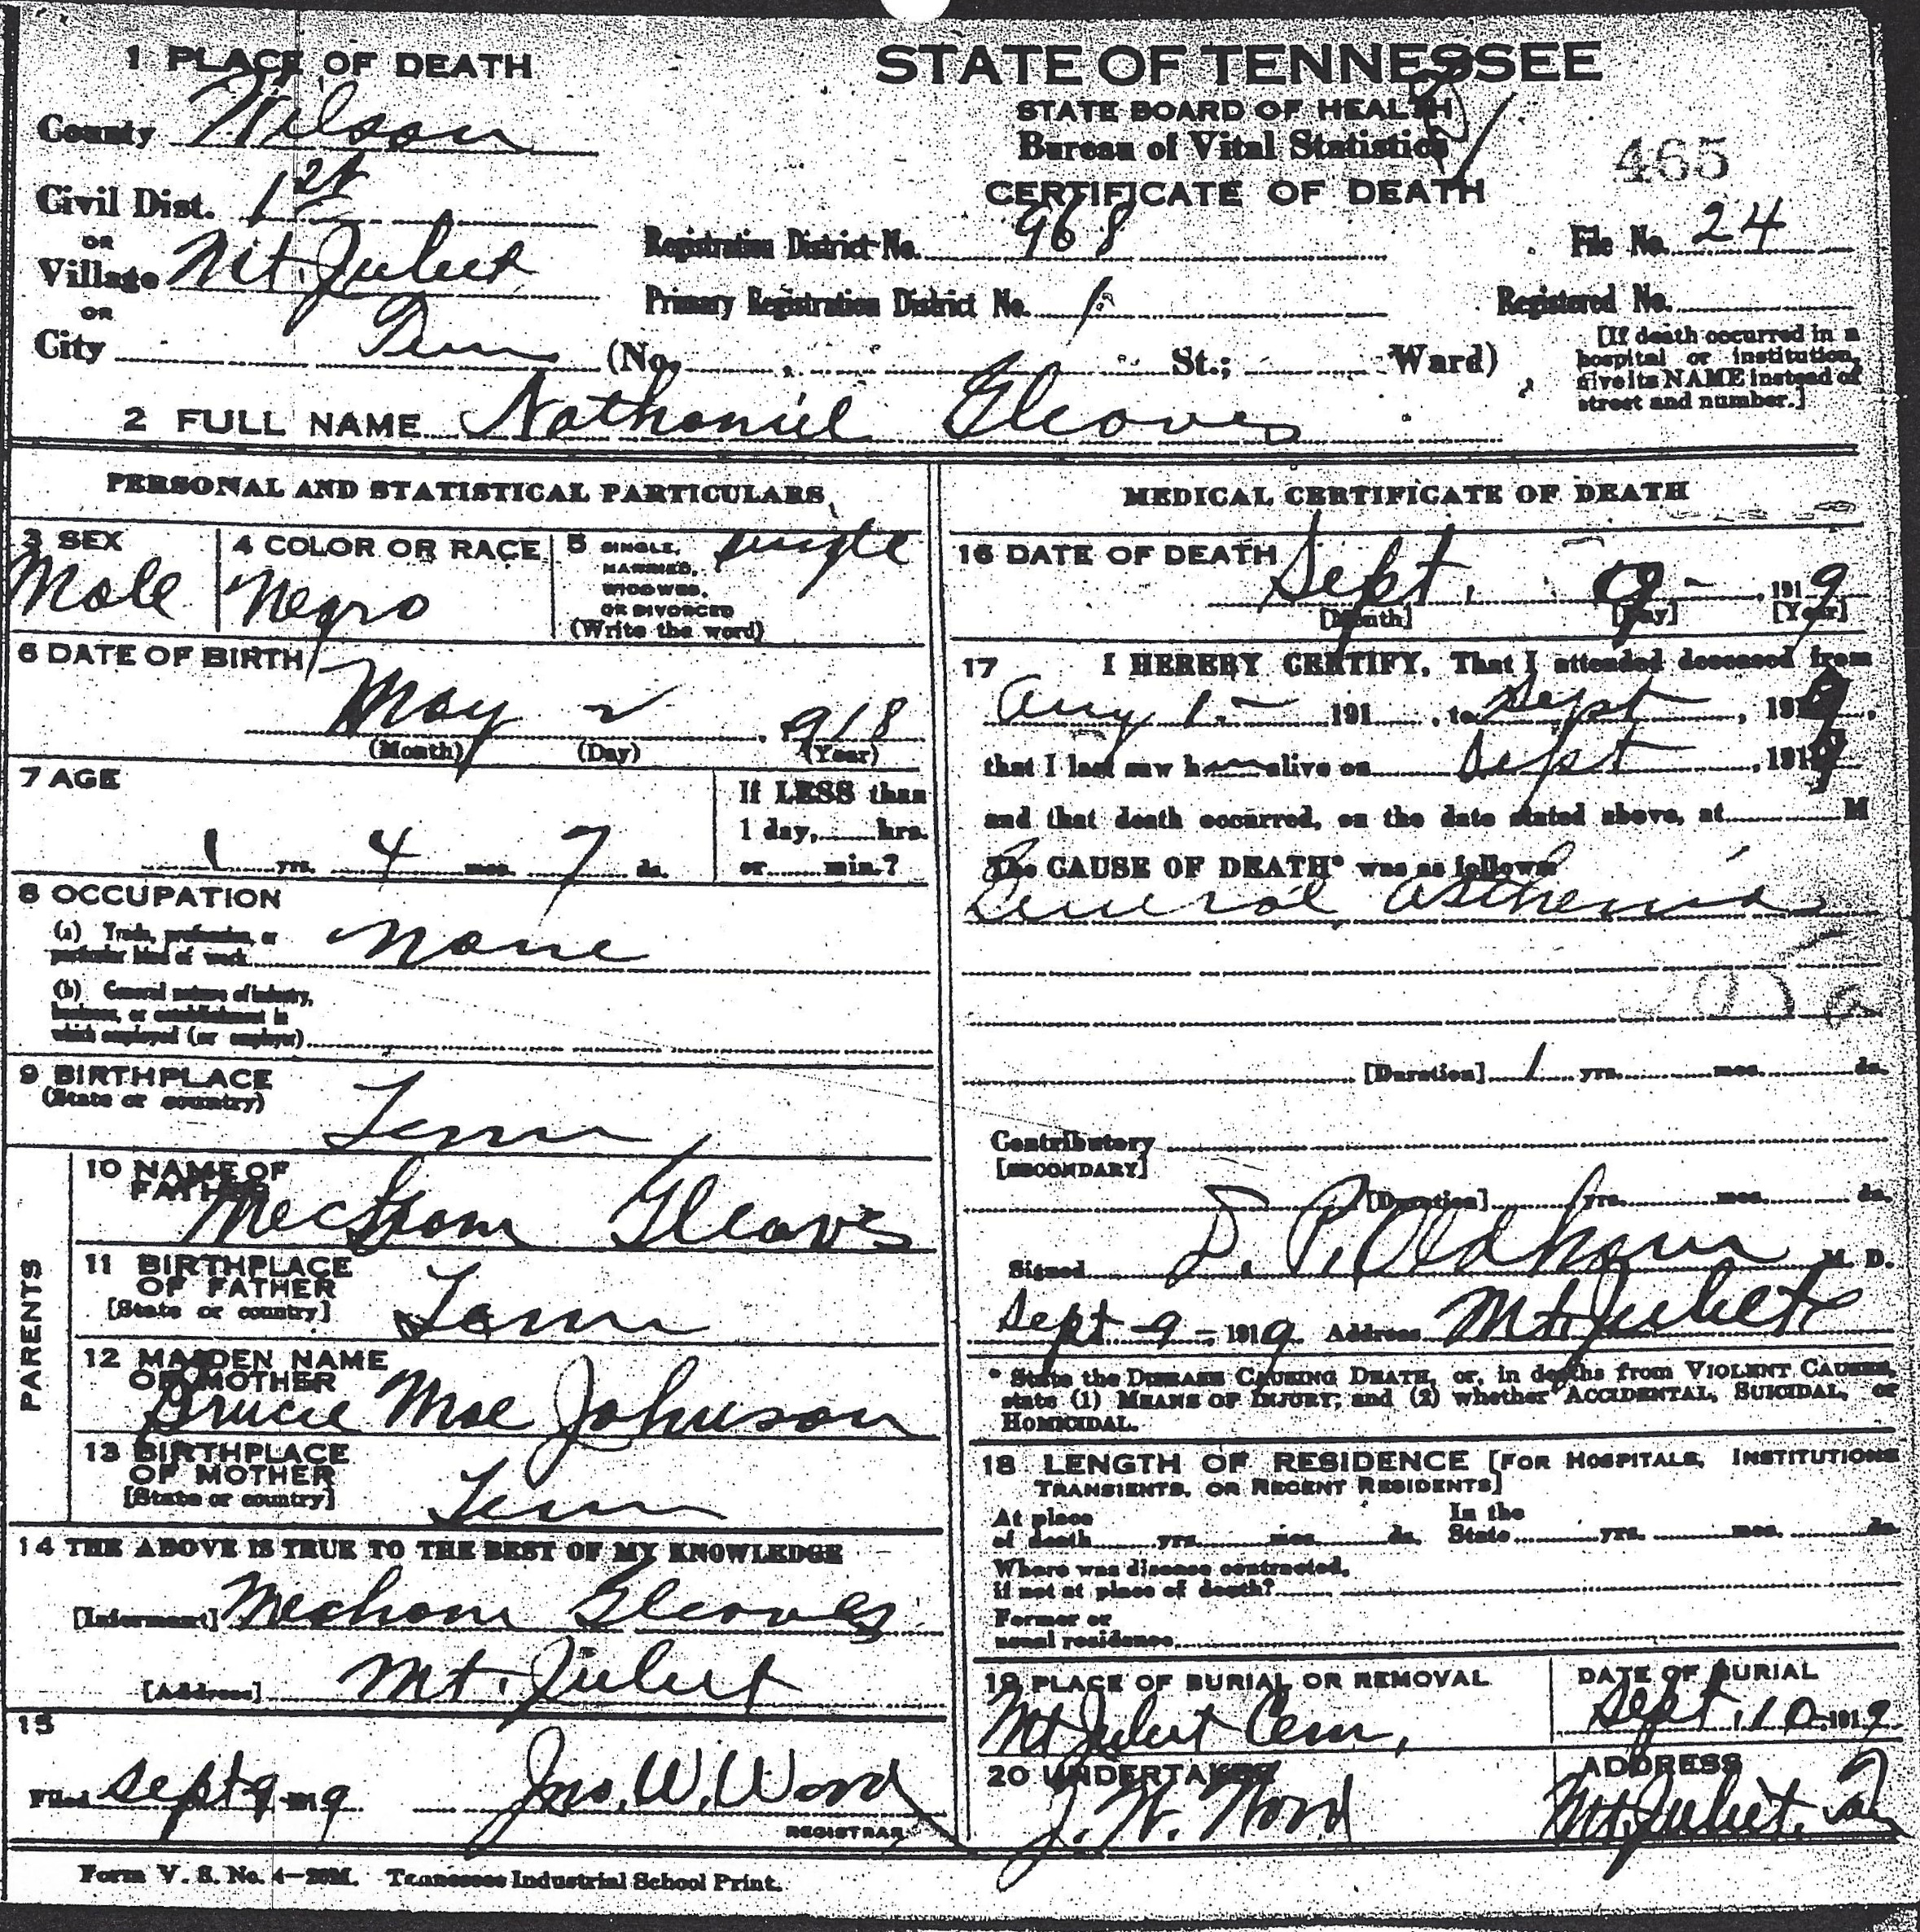 1 PLACE OF DEATH
County Wilson
Civil Dist. 1st
OR
Village Mt. Juliet
OR
City Tenn (No. St.; Ward)
STATE OF TENNESSEE
STATE BOARD OF HEALTH
Bureau of Vital Statistics
CERTIFICATE OF DEATH
465
Registration District No. 968
File No. 24
Primary Registration District No. 1
Registered No.
[If death occurred in a
hospital or institution,
give its NAME instead of
street and number.]
2 FULL NAME Nathaniel Gleaves
PERSONAL AND STATISTICAL PARTICULARS
3 SEX
Male
4 COLOR OR RACE
Negro
5 SINGLE,
MARRIED,
WIDOWED,
OR DIVORCED
(Write the word)
single
6 DATE OF BIRTH
May 2, 918
(Month) (Day) (Year)
7 AGE
1 yrs. 4 mos. 7 ds.
If LESS than
1 day, hrs.
or min.?
8 OCCUPATION
(a) Trade, profession, or
particular kind of work None
(b) General nature of industry,
business, or establishment in
which employed (or employer)
9 BIRTHPLACE
(State or country)
Tenn
PARENTS
10 NAME OF
FATHER
Gleaves
11 BIRTHPLACE
OF FATHER
[State or country]
Tenn
12 MAIDEN NAME
OF MOTHER
Mae Johnson
13 BIRTHPLACE
OF MOTHER
[State or country]
Tenn
14 THE ABOVE IS TRUE TO THE BEST OF MY KNOWLEDGE
[Informant] Mecham Gleaves
[Address] Mt. Juliet
15
Filed Sept 9 1919 Jno. W. Word
REGISTRAR
MEDICAL CERTIFICATE OF DEATH
16 DATE OF DEATH
Sept. 9 - 1919
[Month] [Day] [Year]
17 I HEREBY CERTIFY, That I attended deceased from
Aug 1 - 191 , to Sept , 1919,
that I last saw him alive on Sept , 1919
and that death occurred, on the date stated above, at M
The CAUSE OF DEATH* was as follows
General asthenia
[Duration] 1 yrs. mos. ds.
Contributory
[SECONDARY]
[Duration] yrs. mos. ds.
Signed P. Oldham M. D.
Sept - 9 - 1919 Address Mt. Juliet
* State the DISEASE CAUSING DEATH, or, in deaths from VIOLENT CAUSES,
state (1) MEANS OF INJURY; and (2) whether ACCIDENTAL, SUICIDAL, or
HOMICIDAL.
18 LENGTH OF RESIDENCE [FOR HOSPITALS, INSTITUTIONS
TRANSIENTS, OR RECENT RESIDENTS]
At place
of death yrs. mos. ds.
In the
State yrs. mos. ds.
Where was disease contracted,
if not at place of death?
Former or
usual residence
19 PLACE OF BURIAL OR REMOVAL
Mt Juliet Cem,
DATE OF BURIAL
Sept. 10, 1919
20 UNDERTAKER
J. W. Word
ADDRESS
Mt. Juliet,
Form V. S. No. 4 Tennessee Industrial School Print.